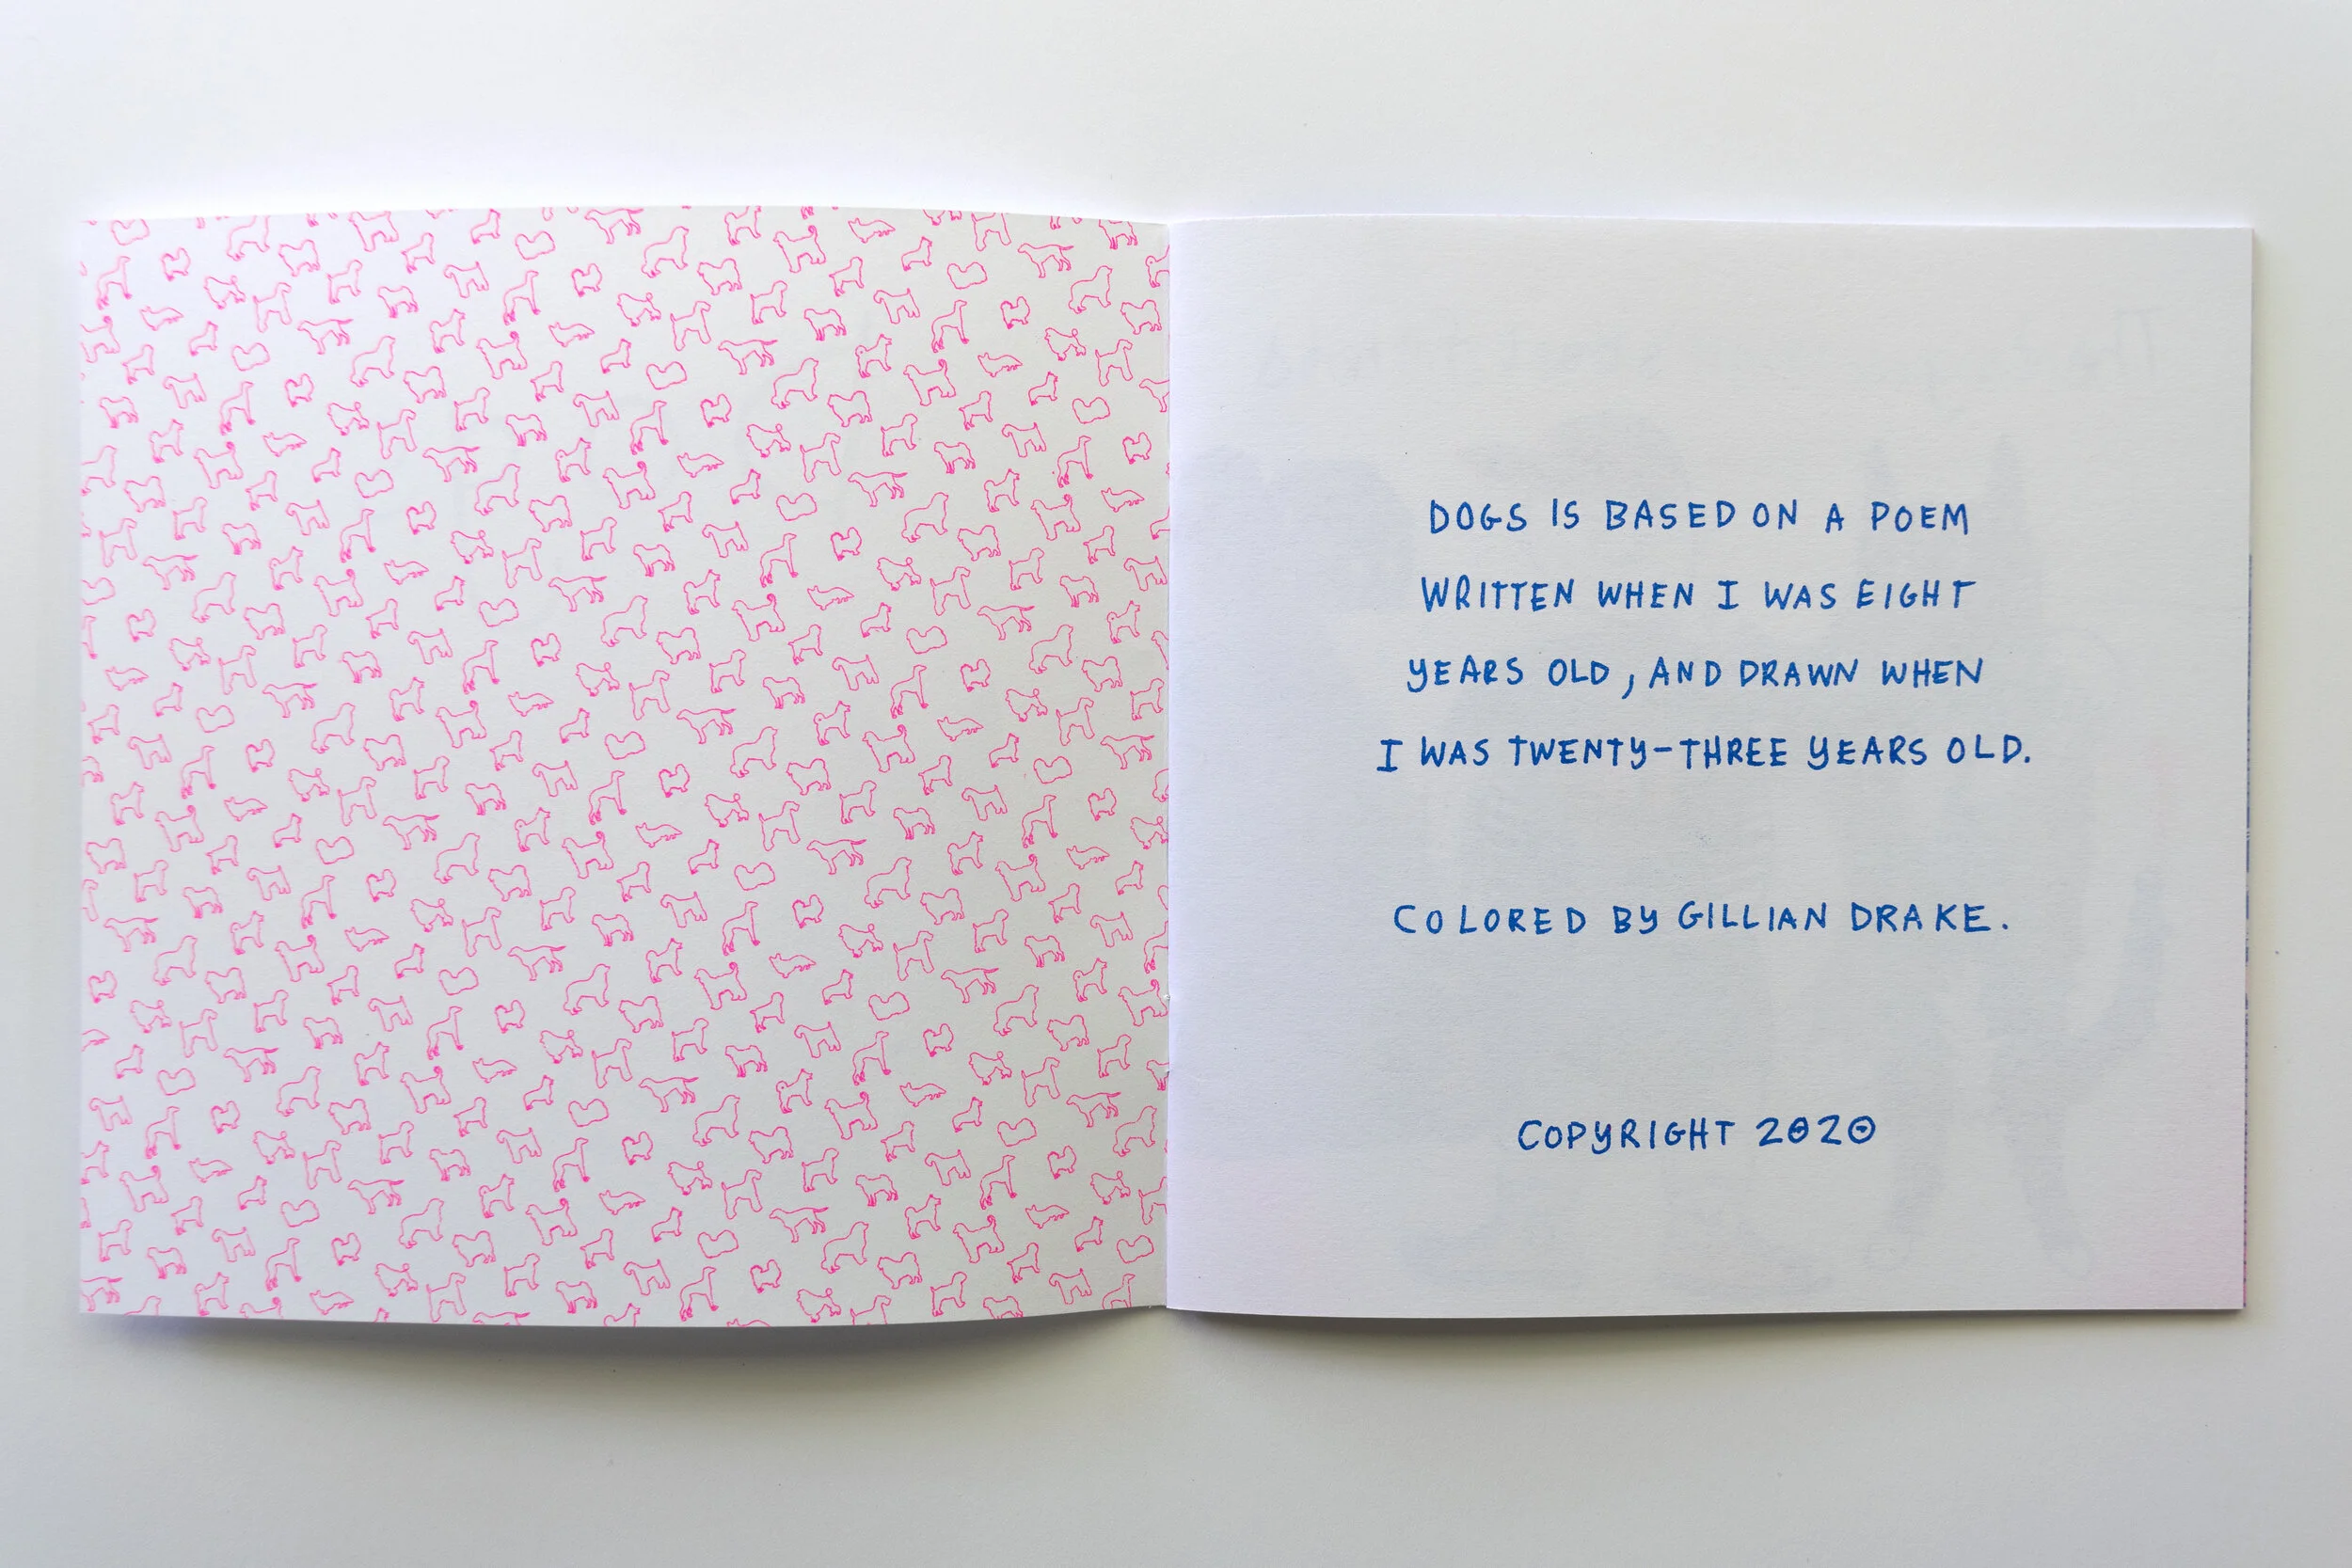 DOGS IS BASED ON A POEM
WRITTEN WHEN I WAS EIGHT
YEARS OLD, AND DRAWN WHEN
I WAS TWENTY-THREE YEARS OLD.
COLORED BY GILLIAN DRAKE.
COPYRIGHT 2020